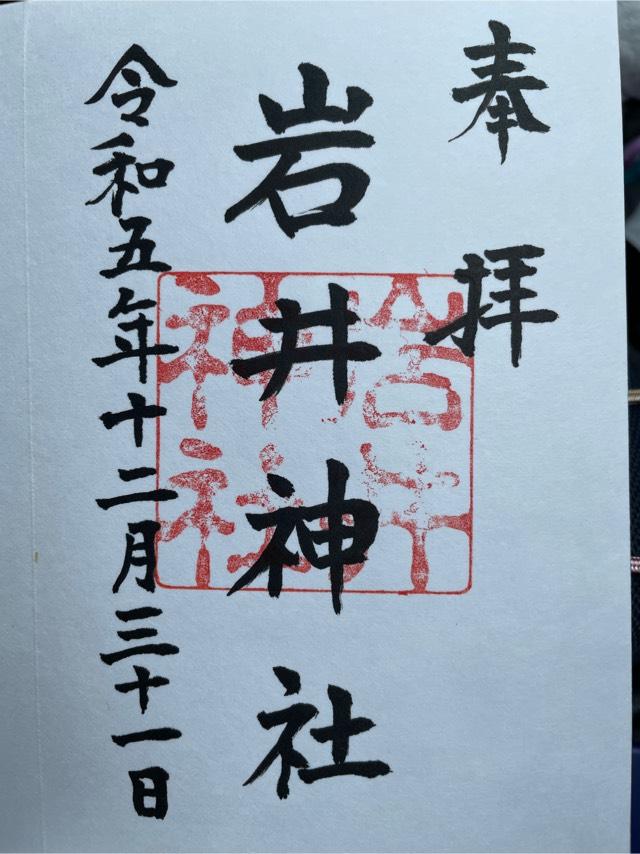 奉拝
岩井神社
岩井神社
令和五年十二月三十一日